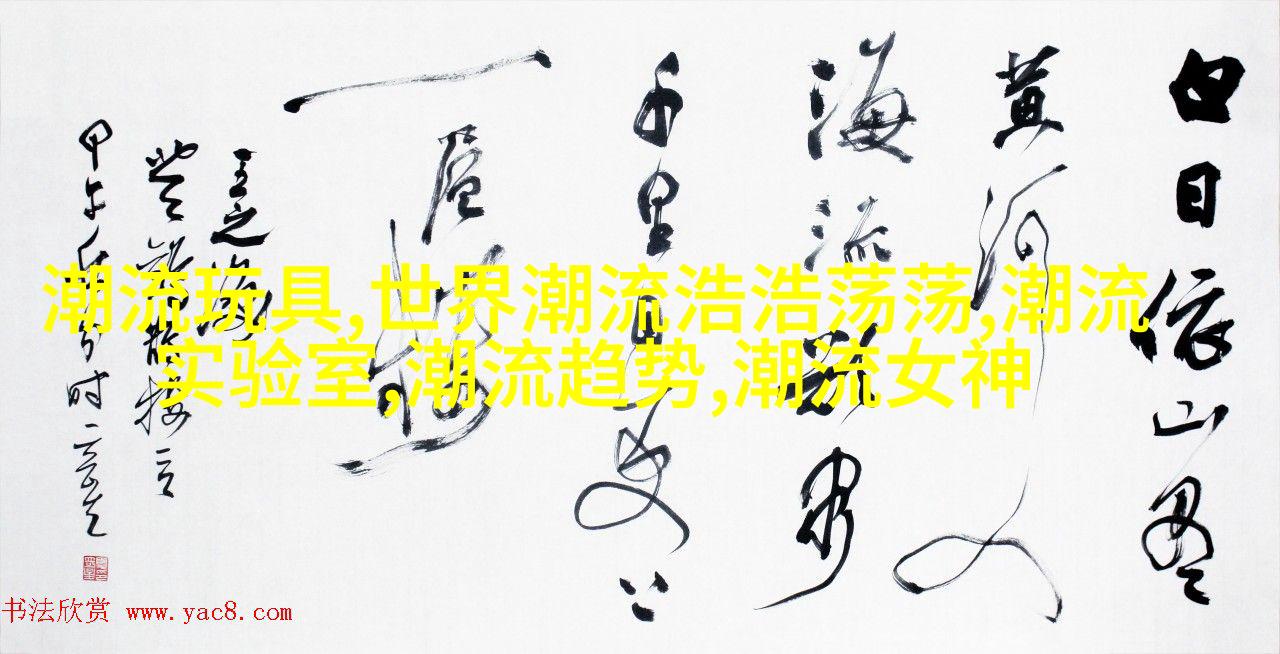 白日依山尽
黄河入
海流欲穷
千里目更上
一层楼
王之涣
登鹳雀楼
甲午秋分时
潮流玩具,世界潮流浩浩荡荡,潮流
实验室,潮流趋势,潮流女神
书法欣赏 www.yac8.com